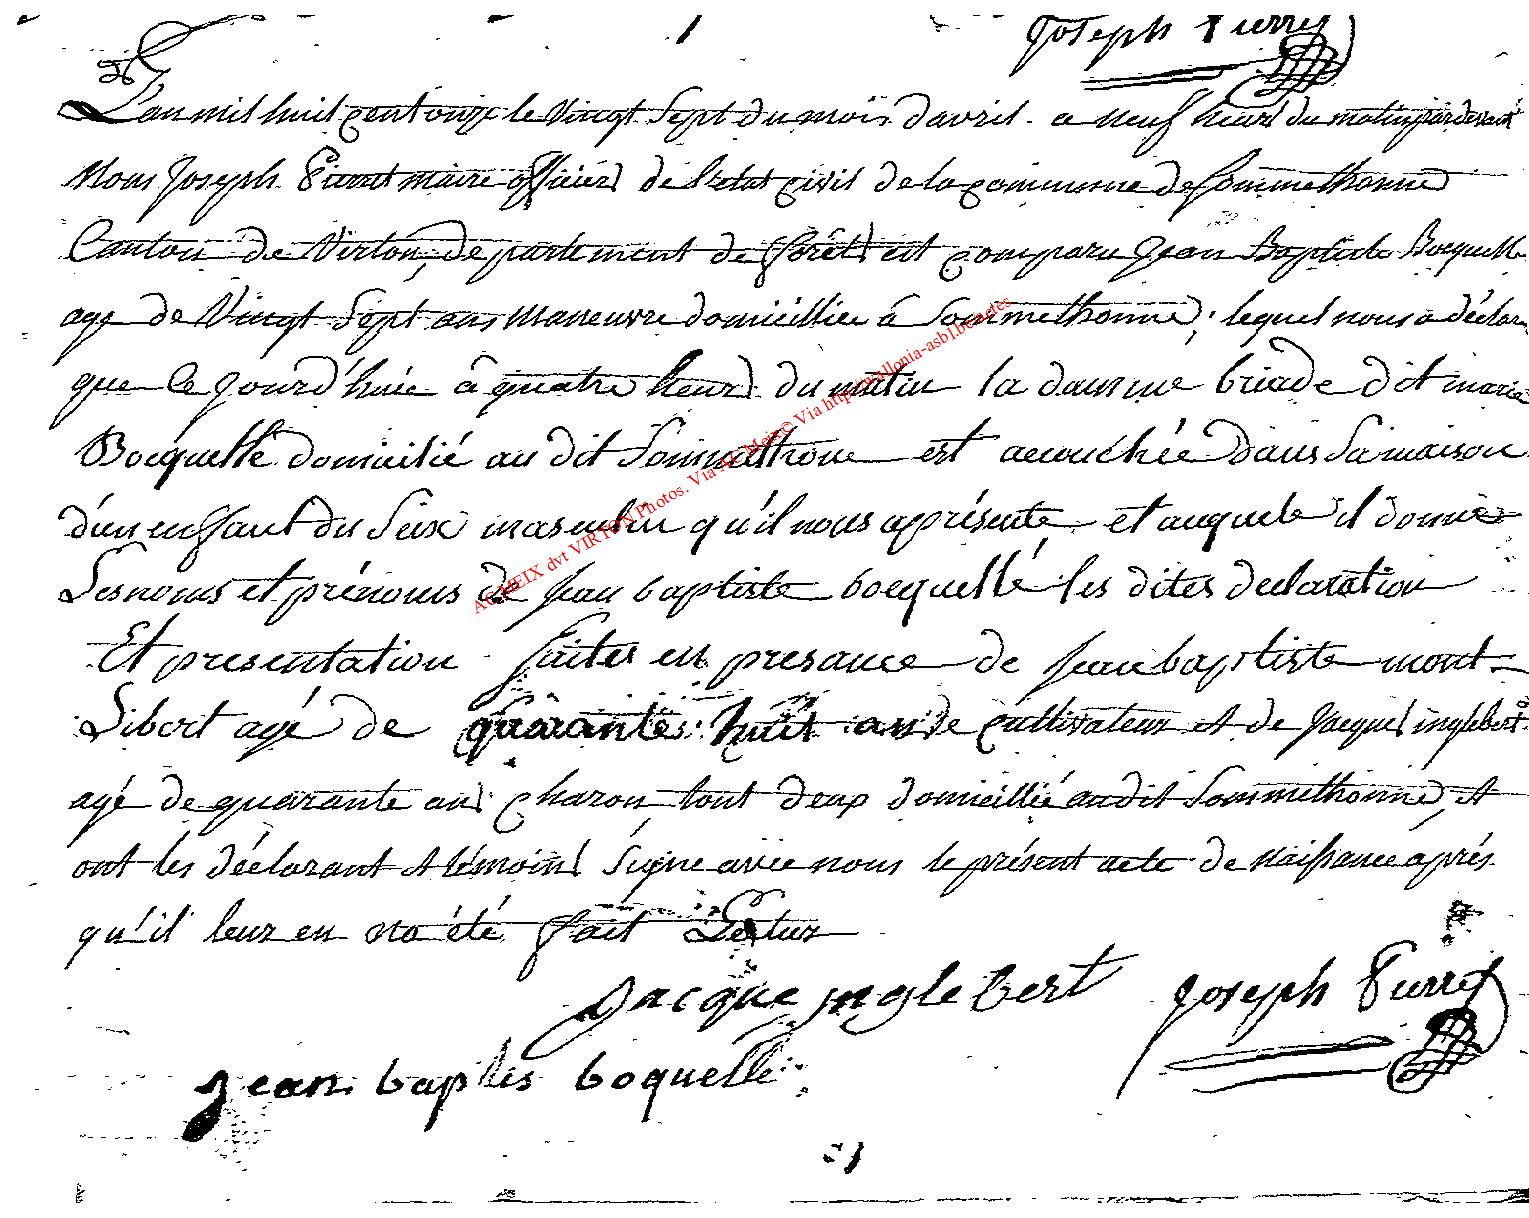 Joseph Pierret
L'an mil huit cent onze le Vingt Sept du mois d'avril a neuf heures du matin pardevant
Nous Joseph Pierret maire officier de l'etat civil de la commune de Sommethonne
Canton de Virton, departement de forêts est comparu Jean Baptiste Bocquelle
age de Vingt Sept ans Maneuvre domicillie à Sommethonne, lequel nous a déclare
que ce jourd'huie à quatre heures du matin la damme briade dit marie
Bocquelle domicilié au dit Sommethone est acouchée dans Sa maison
d'un enffant du Sexe masculin qu'il nous a présente et auquele il donne
Les noms et prénoms de jean baptiste bocquellé les dites declaration
Et presentation faites en presance de jean baptiste mont-
Libert agé de quarante huit ans de cultivateur et de Jacques inglebert
agé de quarante ans charon tout deux domicillié au dit Sommethonne, et
ont les déclarant et témoins Signe avec nous le présent acte de Naissance après
qu'il leur en na été fait Lectur
Jacque jnglebert Joseph Pierret
jean baptis boquelle
AC MEIX dvt VIRTON Photos. Via AC Meix© Via http://wallonia-asbl.be/actes